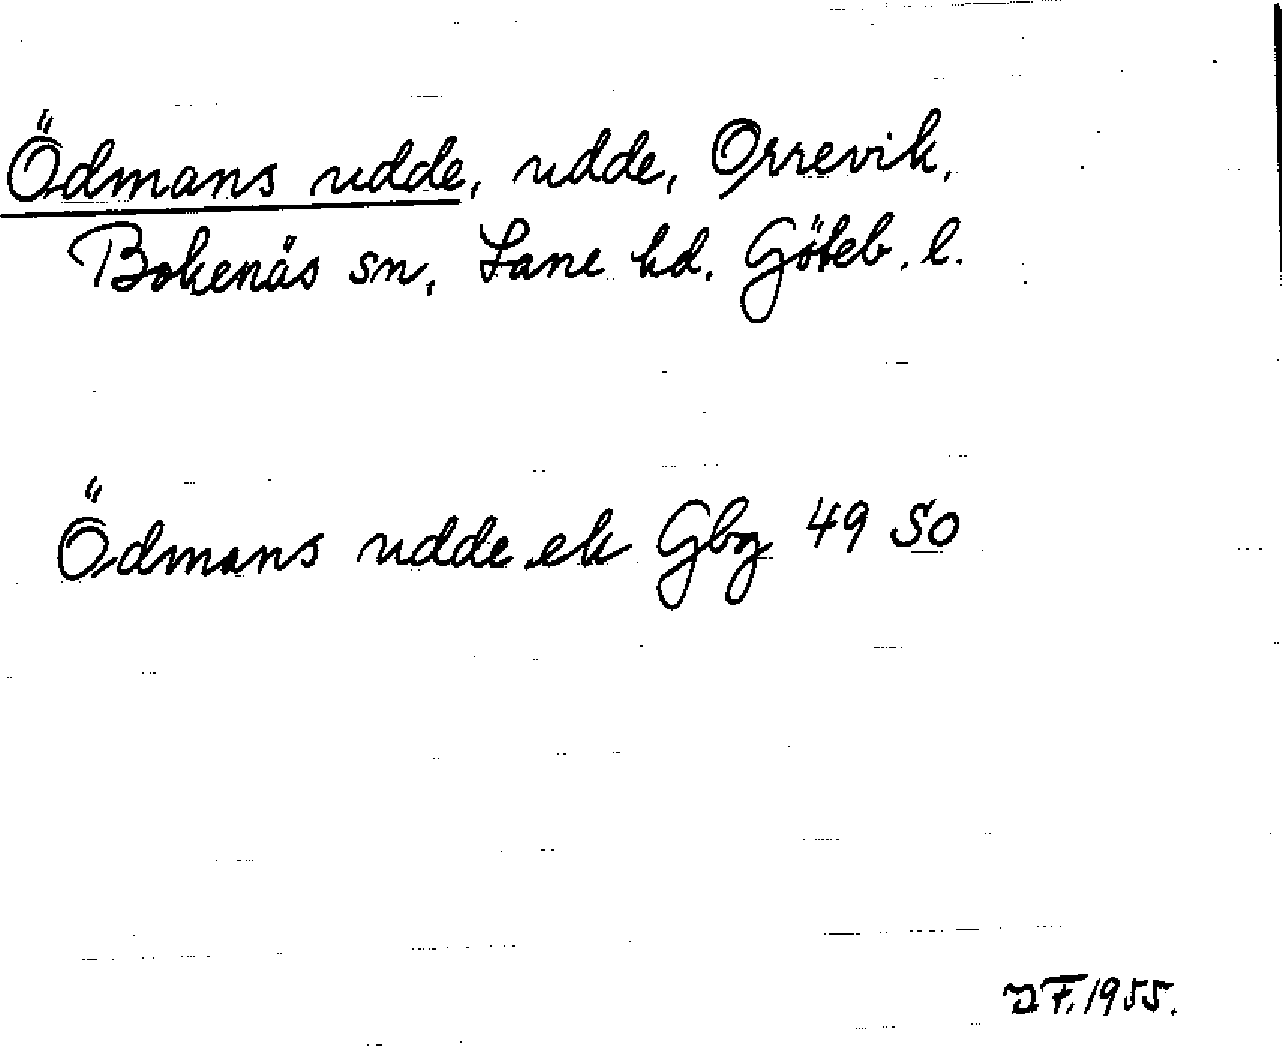 Ödmans udde, udde, Orrevik,
Bokenäs sn, Lane hd. Göteb. l.
Ödmans udde ek Gbg 49 SO
J F. 1955.